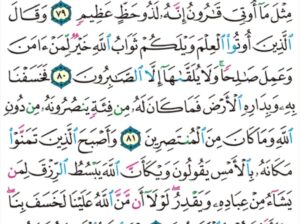 مِثْلَ مَا أُوتِيَ قَٰرُونُ إِنَّهُۥ لَذُو حَظٍّ عَظِيمٍ ٧٩ وَقَالَ
ٱلَّذِينَ أُوتُوا۟ ٱلْعِلْمَ وَيْلَكُمْ ثَوَابُ ٱللَّهِ خَيْرٌ لِّمَنْ ءَامَنَ
وَعَمِلَ صَٰلِحًا وَلَا يُلَقَّىٰهَآ إِلَّا ٱلصَّٰبِرُونَ ٨٠ فَخَسَفْنَا
بِهِۦ وَبِدَارِهِ ٱلْأَرْضَ فَمَا كَانَ لَهُۥ مِن فِئَةٍ يَنصُرُونَهُۥ مِن دُونِ
ٱللَّهِ وَمَا كَانَ مِنَ ٱلْمُنتَصِرِينَ ٨١ وَأَصْبَحَ ٱلَّذِينَ تَمَنَّوْا۟
مَكَانَهُۥ بِٱلْأَمْسِ يَقُولُونَ وَيْكَأَنَّ ٱللَّهَ يَبْسُطُ ٱلرِّزْقَ لِمَن
يَشَآءُ مِنْ عِبَادِهِۦ وَيَقْدِرُ لَوْلَآ أَن مَّنَّ ٱللَّهُ عَلَيْنَا لَخَسَفَ بِنَا